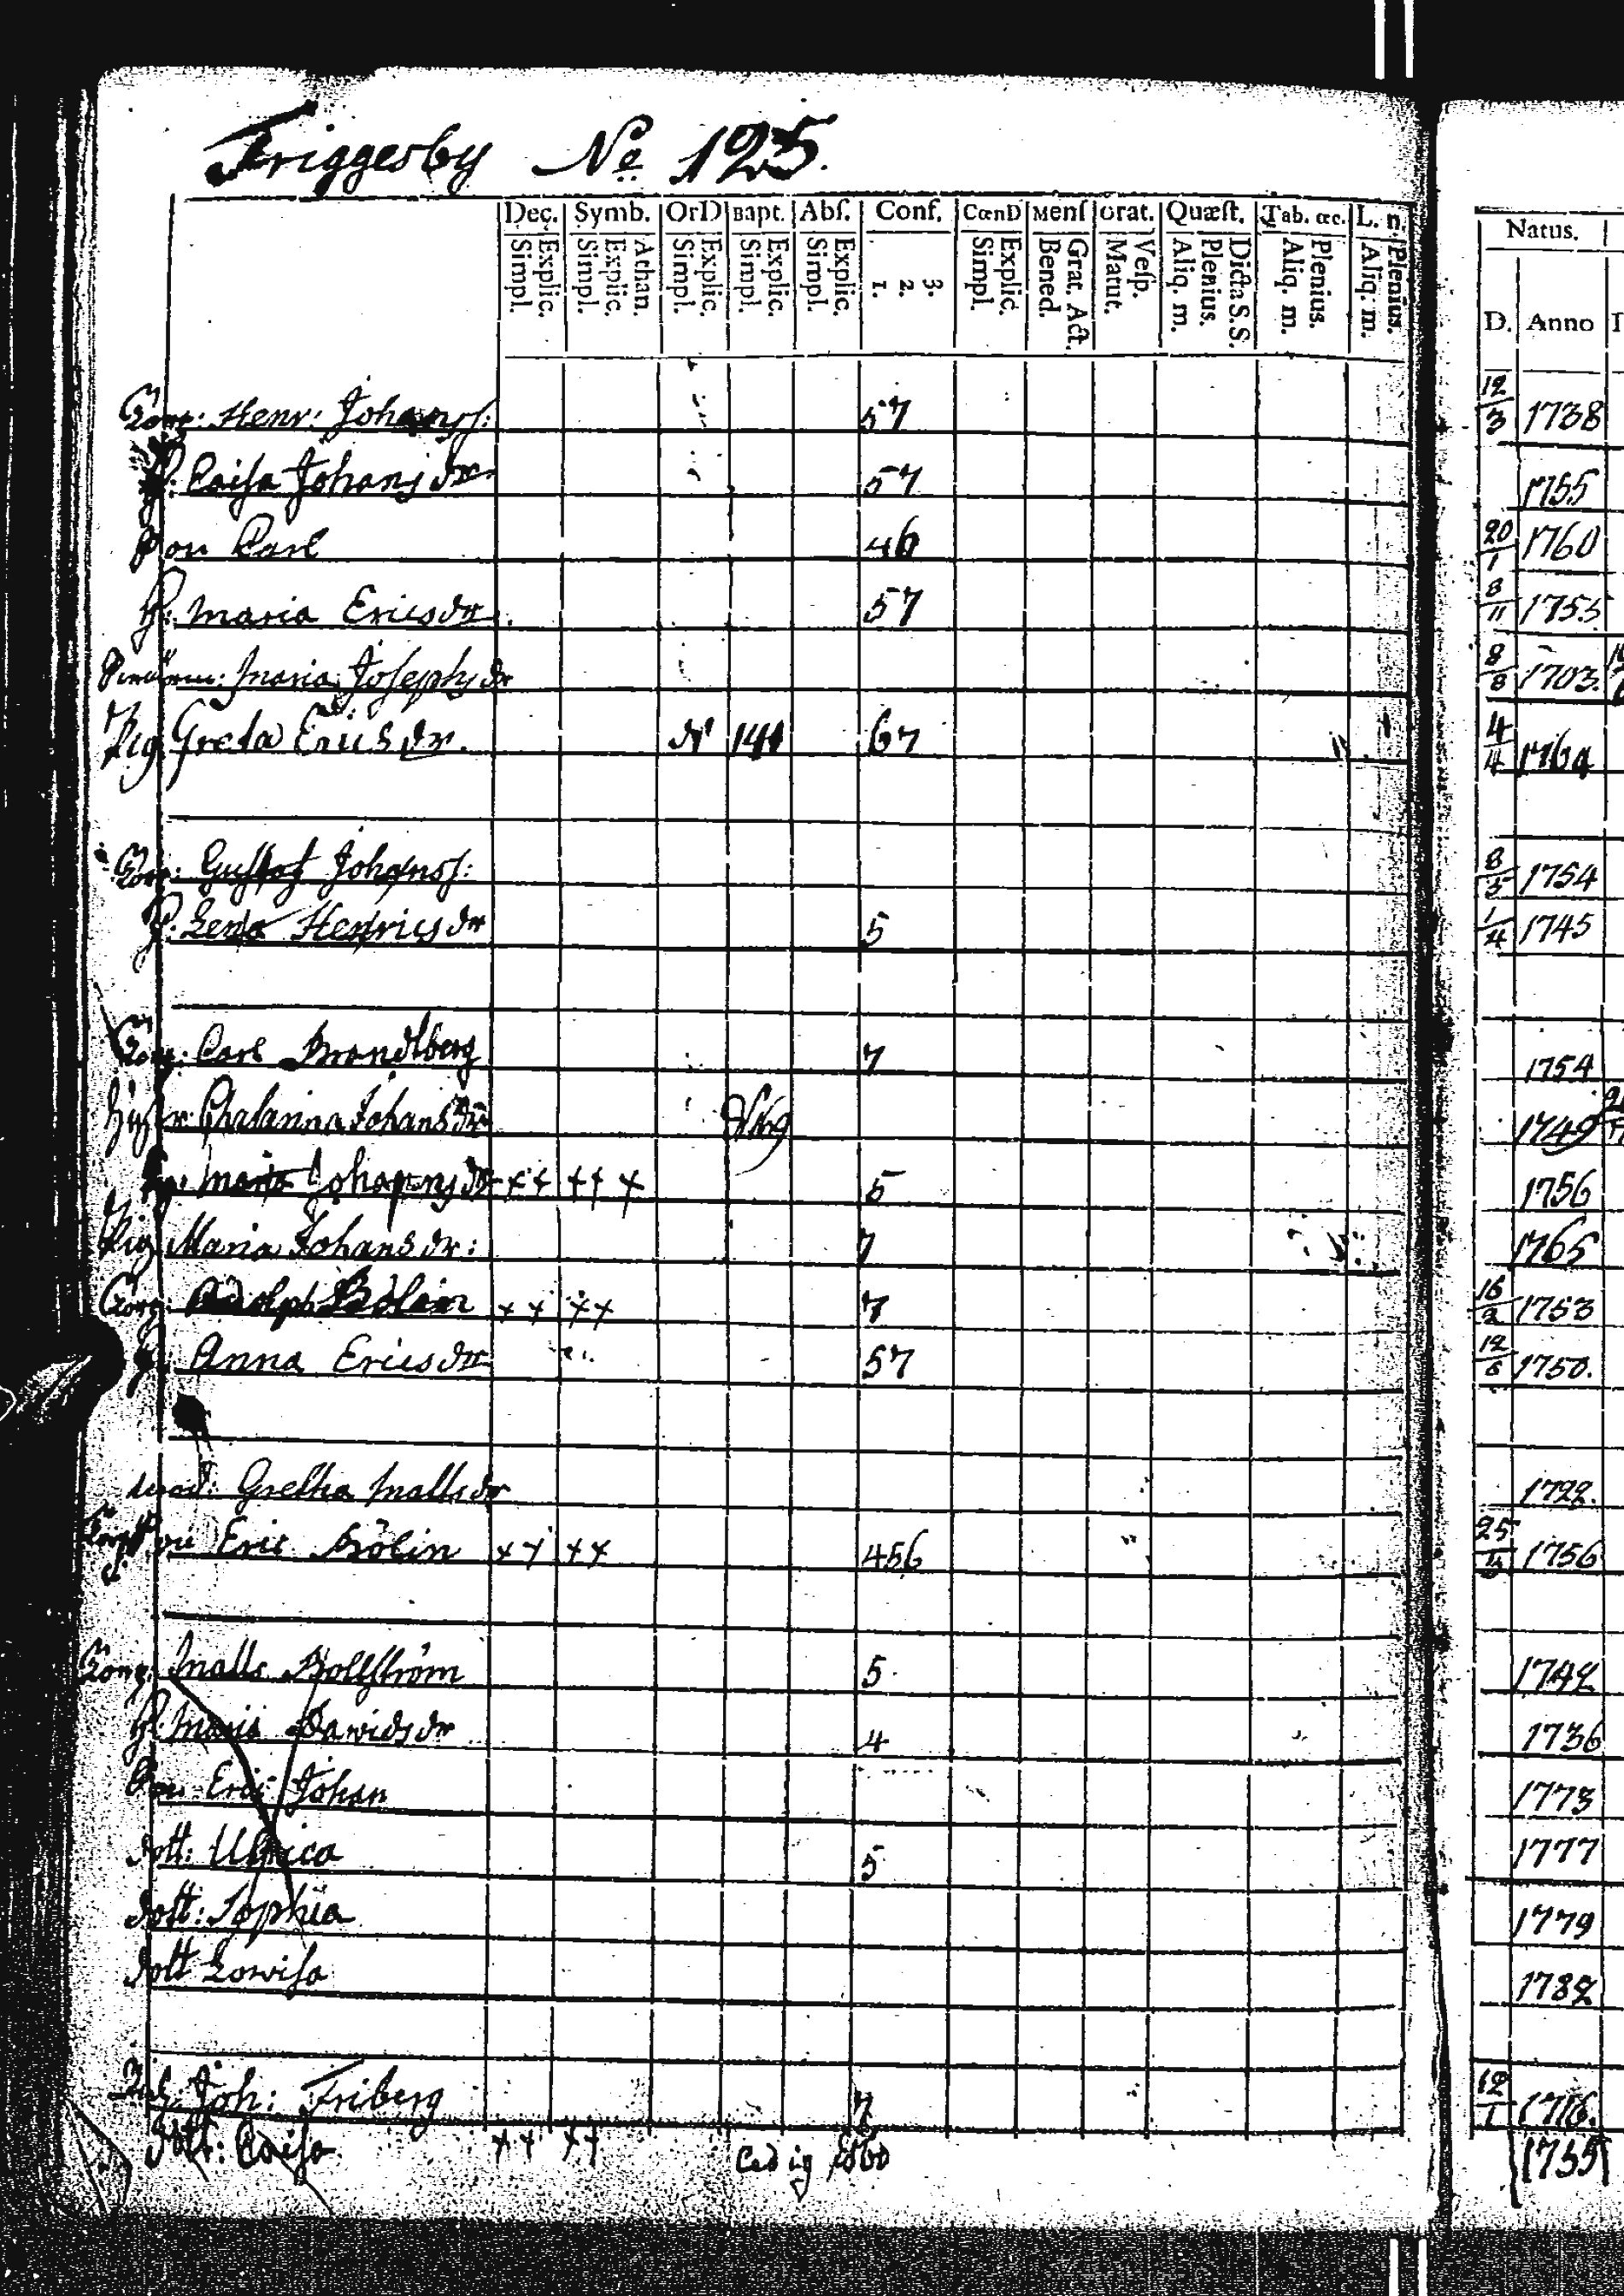 Friggesby No 125.
Dec. Symb. OrD Bapt. Abſ. Conf. CœnD Menſ orat. Quæſt. Tab. œc. L. n. Natus.
Simpl. Explic. Simpl. Explic. Athan. Simpl. Explic. Simpl. Explic. Simpl. Explic. 1. 2. 3. Simpl. Explic. Bened. Grat. Act. Matut. Veſp. Aliq. m. Plenius. Dicta S.S. Aliq. m. Plenius. Aliq. m. Plenius. D. Anno
Henr: Johansſ: 57 12/3 1738
H: Caisa Johans dr 57 1755
Son Carl 46 20/1 1760
H: Maria Ericsdr. 57 8/11 1755
Maria Josephsdr 8/8 1703.
Pig Greta Ericsdr. 67 4/4
Gustaf Johansſ: 8/5 1754
H: Lena Henricsdr 5 1/4 1745
Carl Brandtberg 7 1754
Johans dr 1749
Maria Johansdr ++ ++ + 5 1756
Pig Maria Johans dr: 7 1765
Adolph Bolin ++ ++ 7 16/2 1753
H: Anna Ericsdr 57 12/6 1750.
Gretha Mattsdr 1722.
Eric Bolin ++ ++ 456 25/4 1756
Matts Bollström 5 1742
H: Maria Davidsdr 4 1736
Son Eric Johan 1773
dott: Ulrica 5 1777
dott: Sophia 1779
dott Lovisa 1782
Joh: Friberg 7 12/1 1716.
dott: Caisa ++ ++ 1755